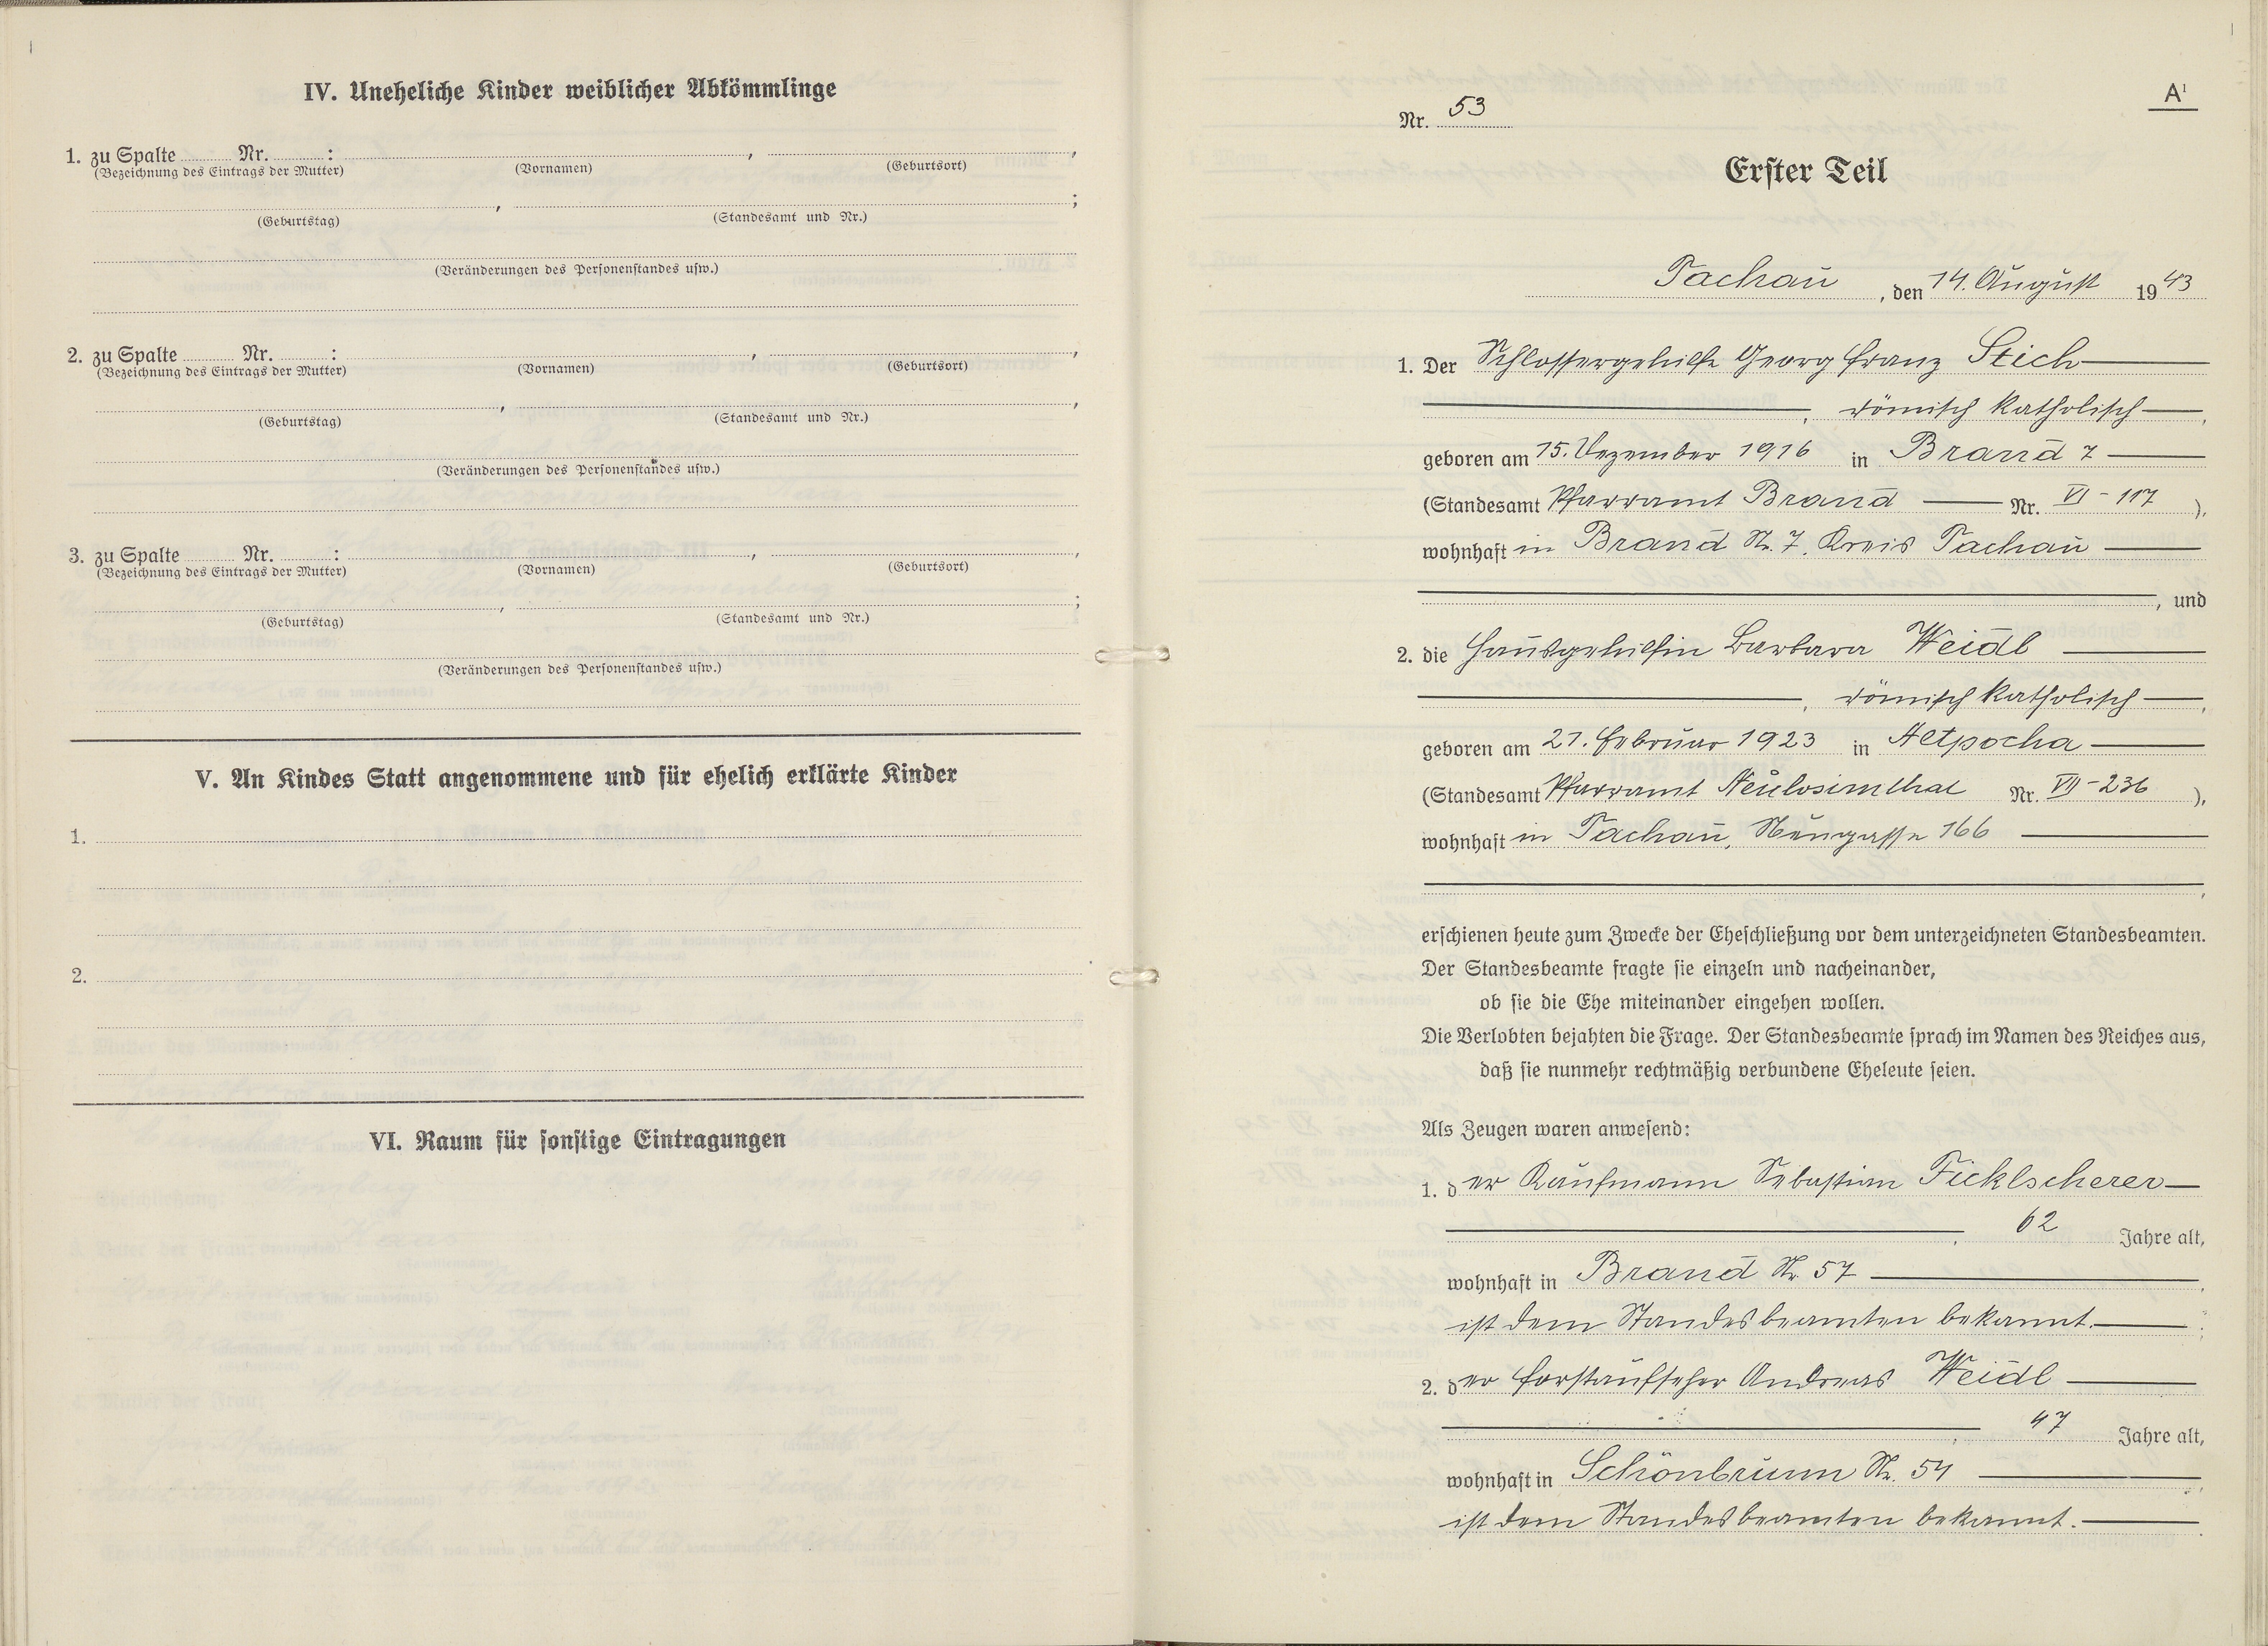 IV. Uneheliche Kinder weiblicher Abkömmlinge
1. zu Spalte Nr. : , ,
(Bezeichnung des Eintrags der Mutter) (Vornamen) (Geburtsort)
, ;
(Geburtstag) (Standesamt und Nr.)
(Veränderungen des Personenstandes usw.)
2. zu Spalte Nr. : , ,
(Bezeichnung des Eintrags der Mutter) (Vornamen) (Geburtsort)
, ,
(Geburtstag) (Standesamt und Nr.)
(Veränderungen des Personenstandes usw.)
3. zu Spalte Nr. : , ,
(Bezeichnung des Eintrags der Mutter) (Vornamen) (Geburtsort)
, ;
(Geburtstag) (Standesamt und Nr.)
(Veränderungen des Personenstandes usw.)
V. An Kindes Statt angenommene und für ehelich erklärte Kinder
1.
2.
VI. Raum für sonstige Eintragungen
A¹
Nr. 53
Erster Teil
Tachau, den 14. August 1943
1. Der Schlossergehilfe Georg Franz Stich
, römisch katholisch,
geboren am 15. Dezember 1916 in Brand 7
(Standesamt Pfarramt Brand Nr. VI - 117),
wohnhaft in Brand Nr. 7, Kreis Tachau
, und
2. die Hausgehilfin Barbara Weidl
, römisch katholisch,
geboren am 21. Februar 1923 in Aetpocha
(Standesamt Pfarramt Neulosimthal Nr. VII - 236),
wohnhaft in Tachau, Neugasse 166
,
erschienen heute zum Zwecke der Eheschließung vor dem unterzeichneten Standesbeamten.
Der Standesbeamte fragte sie einzeln und nacheinander,
ob sie die Ehe miteinander eingehen wollen.
Die Verlobten bejahten die Frage. Der Standesbeamte sprach im Namen des Reiches aus,
daß sie nunmehr rechtmäßig verbundene Eheleute seien.
Als Zeugen waren anwesend:
1. der Kaufmann Sebastian Ficklscherer
, 62 Jahre alt,
wohnhaft in Brand Nr. 57,
ist dem Standesbeamten bekannt. ;
2. der Forstaufseher Andreas Weidl
, 47 Jahre alt,
wohnhaft in Schönbrunn Nr. 54,
ist dem Standesbeamten bekannt.